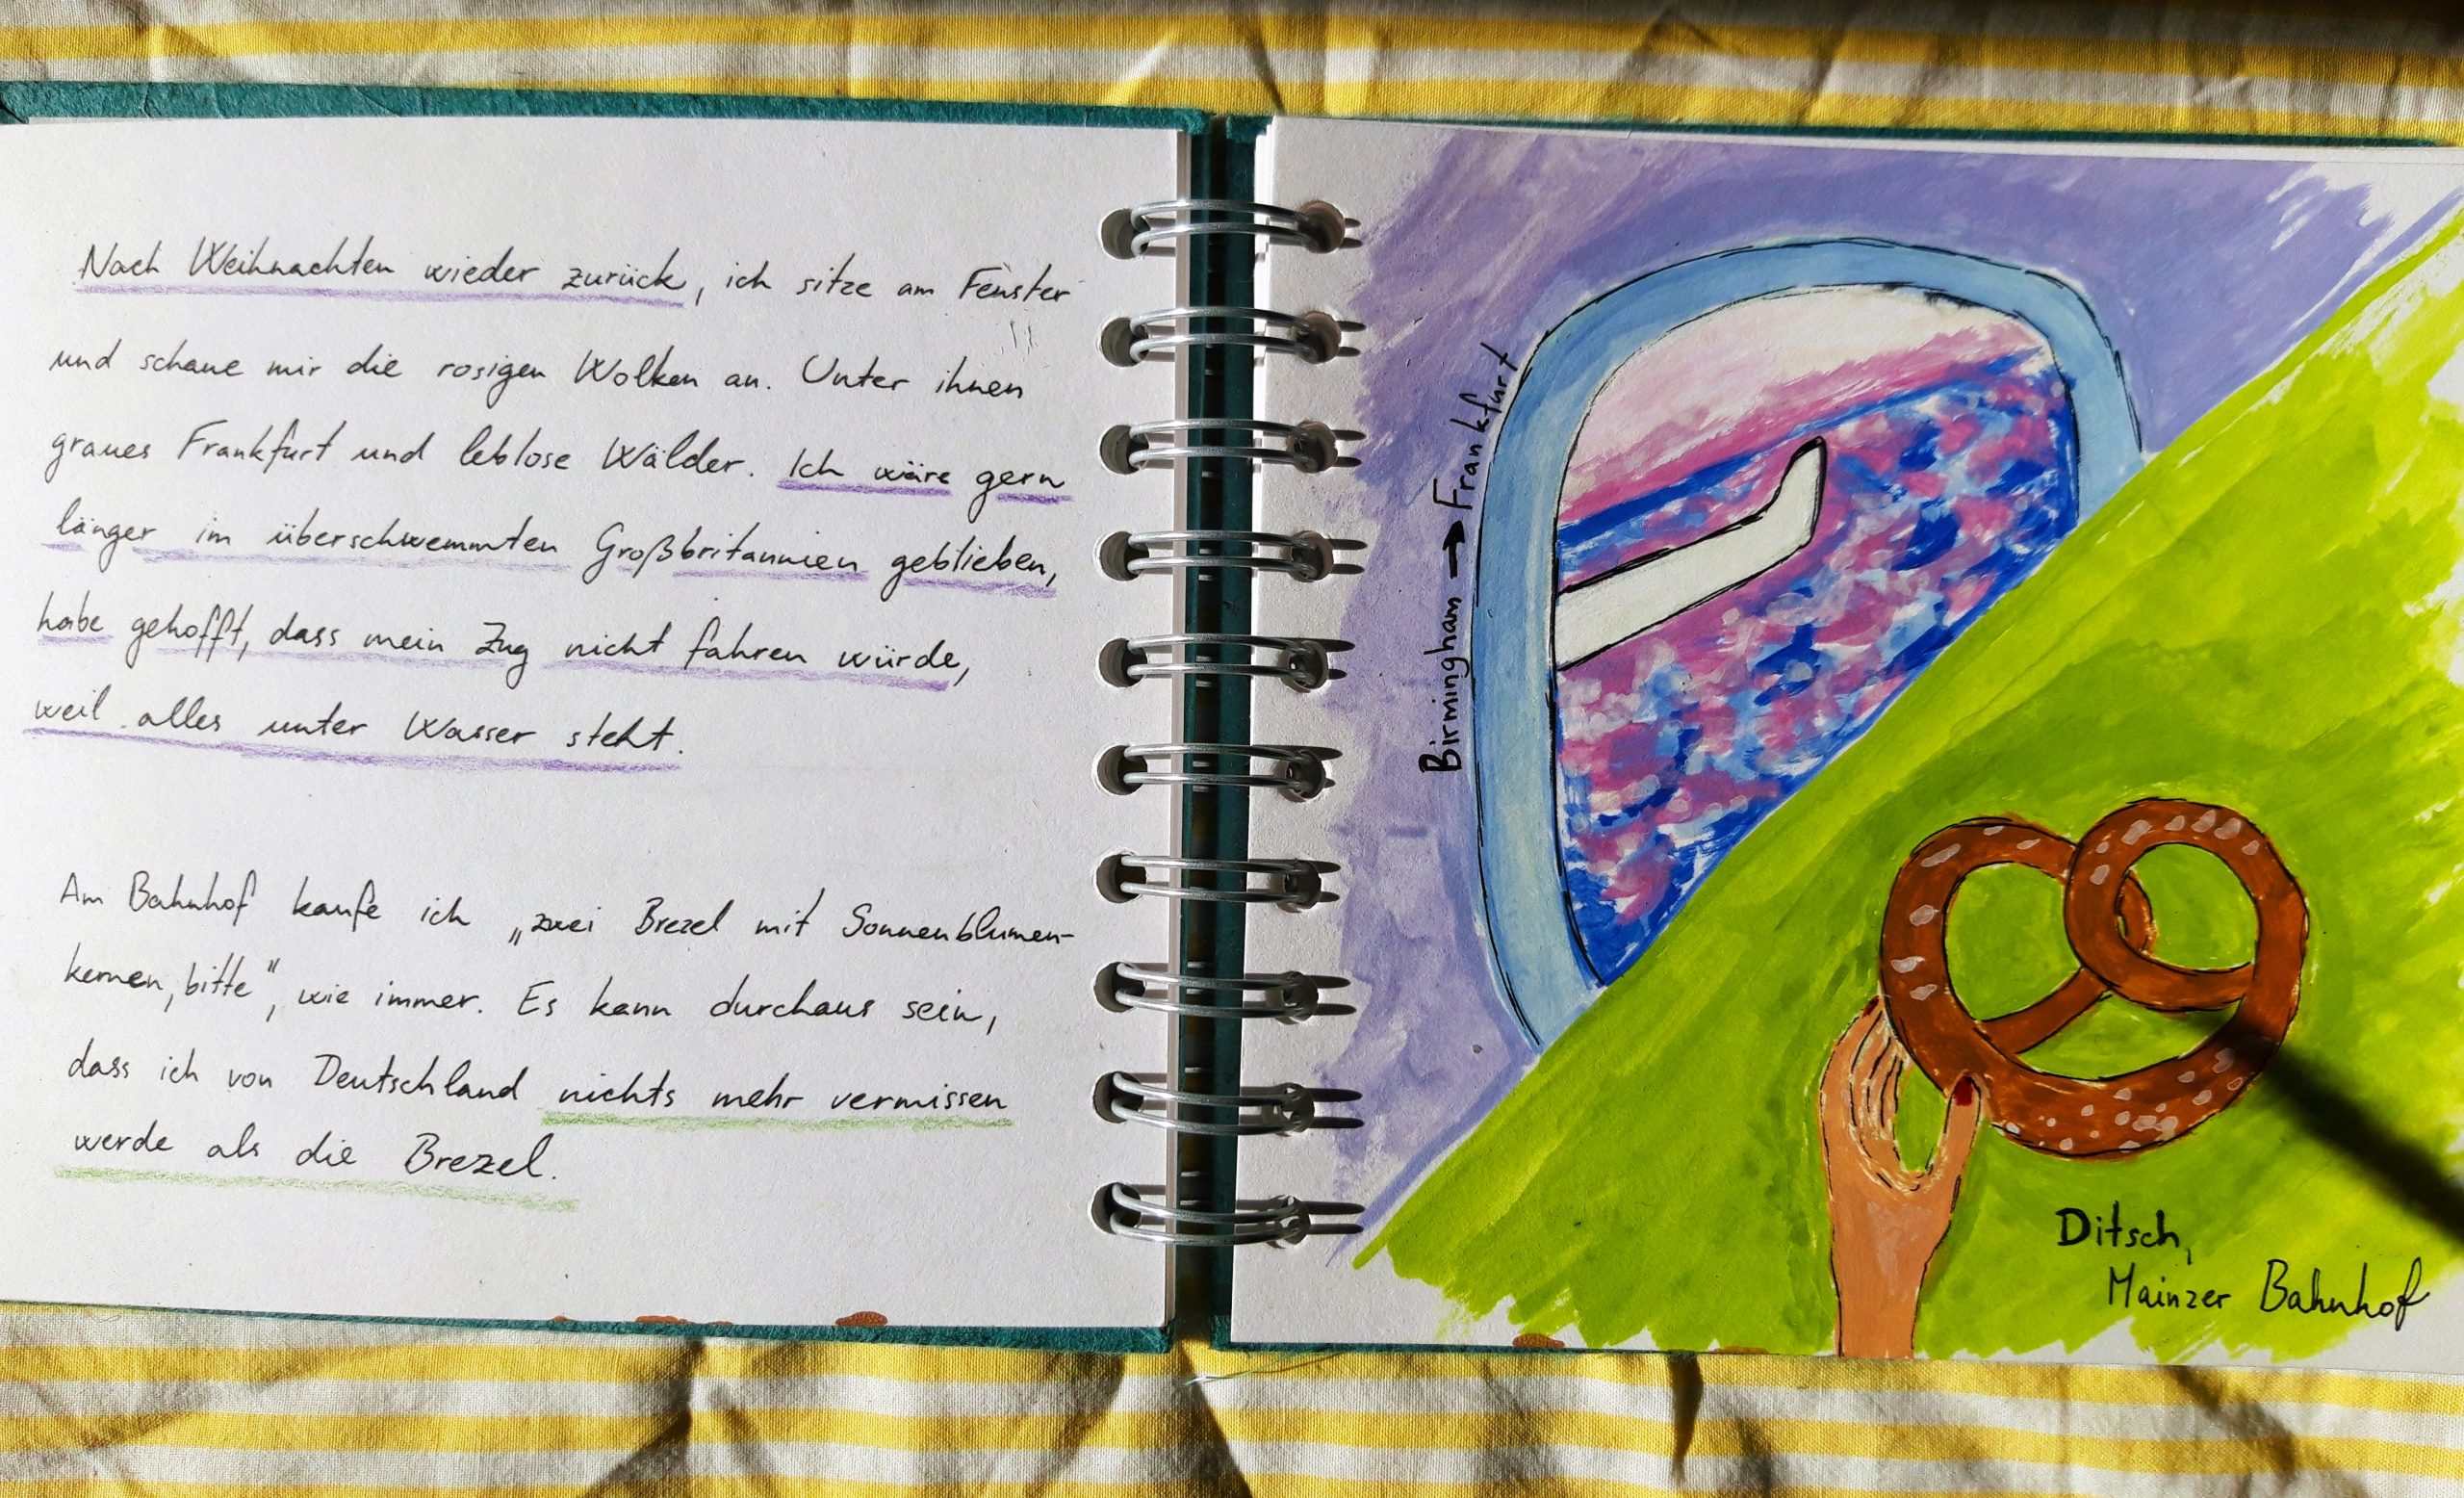 Nach Weihnachten wieder zurück, ich sitze am Fenster
und schaue mir die rosigen Wolken an. Unter ihnen
graues Frankfurt und leblose Wälder. Ich wäre gern
länger im überschwemmten Großbritannien geblieben,
habe gehofft, dass mein Zug nicht fahren würde,
weil alles unter Wasser steht.
Am Bahnhof kaufe ich „zwei Brezel mit Sonnenblumen-
kernen, bitte", wie immer. Es kann durchaus sein,
dass ich von Deutschland nichts mehr vermissen
werde als die Brezel.
Birmingham → Frankfurt
Ditsch,
Mainzer Bahnhof